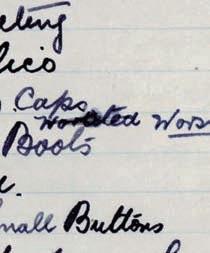 eting
lico
Caps
Worsted Wors
Boots
mall Buttons